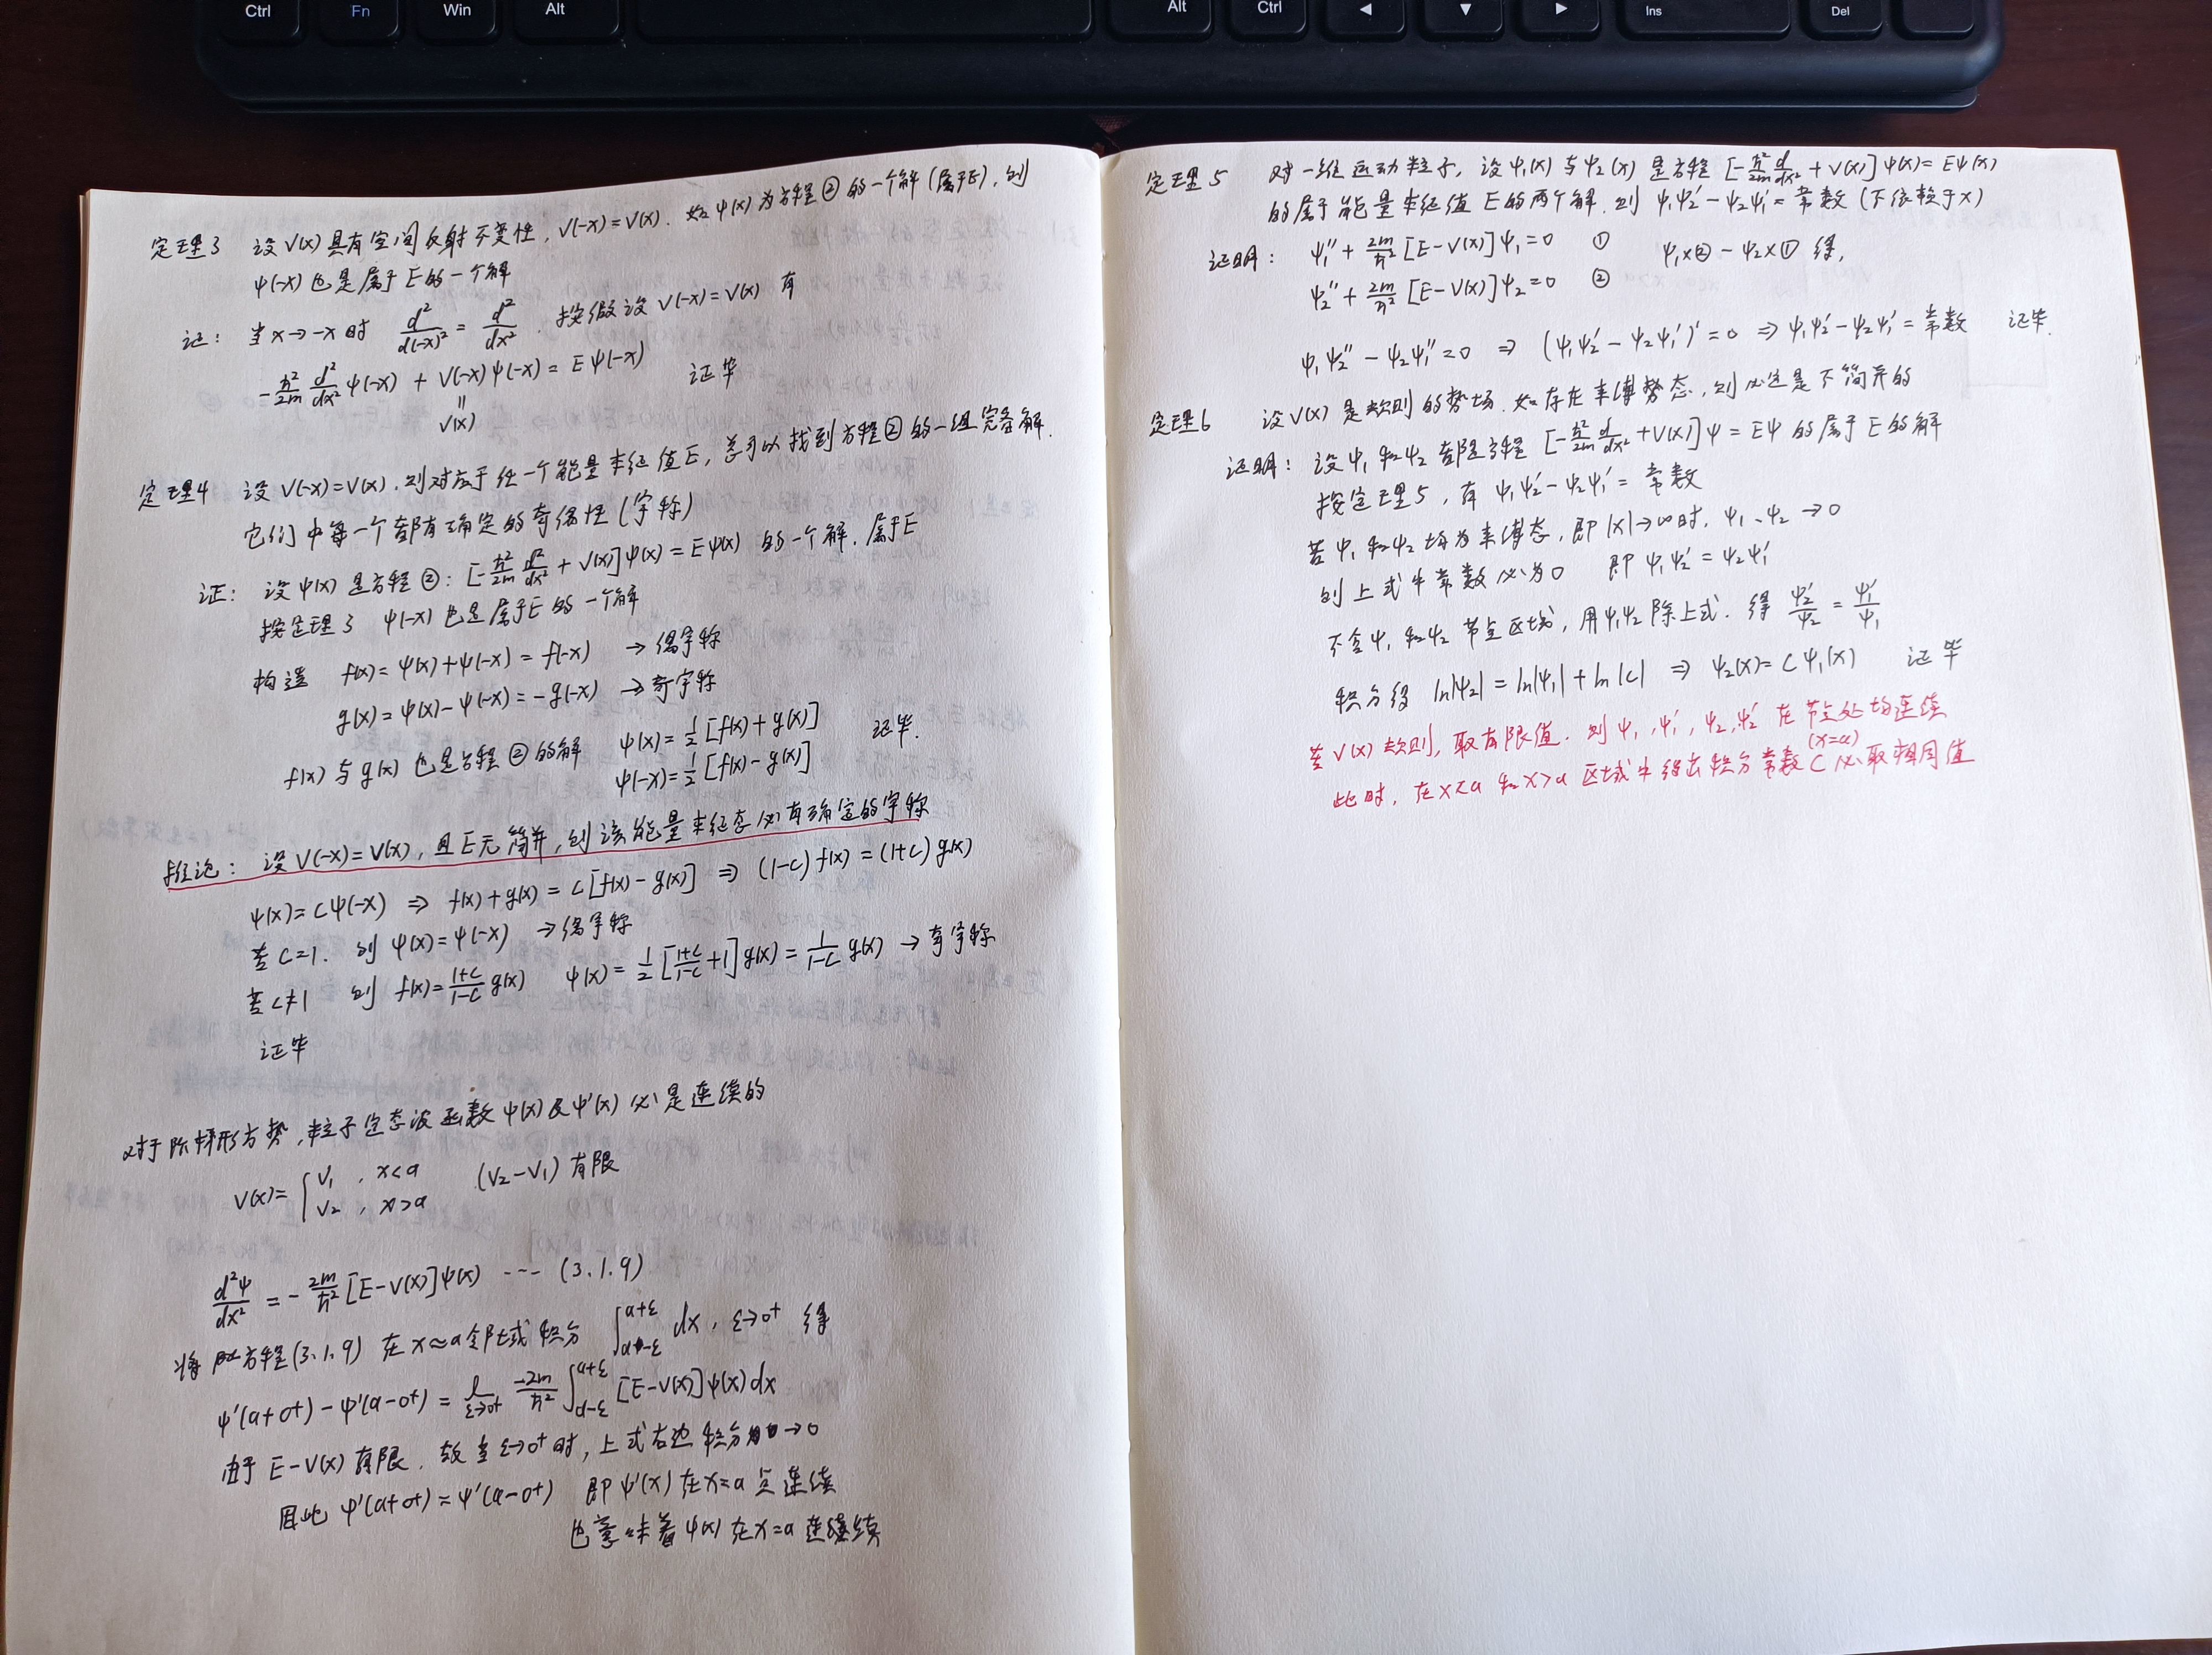 Ctrl Fn Win Alt Alt Ctrl ◄ ▼ ► Ins Del
定理3 设V(x)具有空间反射不变性, V(-x)=V(x). 如ψ(x)为方程②的一个解(属于E), 则
ψ(-x)也是属于E的一个解
证: 当x→-x时 d²/d(-x)² = d²/dx². 按假设V(-x)=V(x) 有
-ħ²/2m d²/dx² ψ(-x) + V(-x)ψ(-x) = Eψ(-x) 证毕
||
V(x)
定理4 设V(-x)=V(x), 则对应于任一个能量本征值E, 总可以找到方程②的一组完备解.
它们中每一个都有确定的奇偶性(宇称)
证: 设ψ(x)是方程②: [-ħ²/2m d²/dx² + V(x)]ψ(x) = Eψ(x) 的一个解, 属于E
按定理3 ψ(-x)也是属于E的一个解
构造 f(x)=ψ(x)+ψ(-x)=f(-x) →偶宇称
g(x)=ψ(x)-ψ(-x)=-g(-x) →奇宇称
f(x)与g(x)也是方程②的解 ψ(x)=1/2[f(x)+g(x)] 证毕.
ψ(-x)=1/2[f(x)-g(x)]
推论: 设V(-x)=V(x), 且E无简并, 则该能量本征态必有确定的宇称
ψ(x)=Cψ(-x) ⇒ f(x)+g(x)=C[f(x)-g(x)] ⇒ (1-C)f(x)=(1+C)g(x)
若C=1. 则ψ(x)=ψ(-x) →偶宇称
若C≠1 则 f(x)=(1+C)/(1-C) g(x) ψ(x)=1/2[(1+C)/(1-C)+1]g(x)=1/(1-C) g(x) →奇宇称
证毕
对于阶梯形方势, 粒子定态波函数ψ(x)及ψ'(x)必是连续的
V(x)={V₁, x<a (V₂-V₁)有限
V₂, x>a
d²ψ/dx² = -2m/ħ² [E-V(x)]ψ(x) --- (3.1.9)
将方程(3.1.9) 在x≈a邻域积分 ∫_{a-ε}^{a+ε} dx, ε→0⁺ 得
ψ'(a+0⁺)-ψ'(a-0⁺) = l_{ε→0⁺} -2m/ħ² ∫_{a-ε}^{a+ε} [E-V(x)]ψ(x)dx
由于E-V(x)有限. 故当ε→0⁺时, 上式右边积分→0
因此ψ'(a+0⁺)=ψ'(a-0⁺) 即ψ'(x)在x=a点连续
也意味着ψ(x)在x=a连续
定理5 对一维运动粒子, 设ψ₁(x)与ψ₂(x)是方程[-ħ²/2m d/dx² + V(x)]ψ(x)=Eψ(x)
的属于能量本征值E的两个解. 则ψ₁ψ₂'-ψ₂ψ₁'=常数(不依赖于x)
证明: ψ₁''+2m/ħ² [E-V(x)]ψ₁=0 ① ψ₁×②-ψ₂×①得,
ψ₂''+2m/ħ² [E-V(x)]ψ₂=0 ②
ψ₁ψ₂''-ψ₂ψ₁''=0 ⇒ (ψ₁ψ₂'-ψ₂ψ₁')'=0 ⇒ ψ₁ψ₂'-ψ₂ψ₁'=常数 证毕.
定理6 设V(x)是规则的势场. 如存在束缚势态, 则必定是不简并的
证明: 设ψ₁和ψ₂都是方程[-ħ²/2m d/dx² +V(x)]ψ=Eψ的属于E的解
按定理5, 有ψ₁ψ₂'-ψ₂ψ₁'=常数
若ψ₁和ψ₂均为束缚态, 即|x|→∞时, ψ₁、ψ₂→0
则上式中常数必为0 即ψ₁ψ₂'=ψ₂ψ₁'
不含ψ₁和ψ₂节点区域, 用ψ₁ψ₂除上式. 得 ψ₂'/ψ₂ = ψ₁'/ψ₁
积分得 ln|ψ₂|=ln|ψ₁|+ln|C| ⇒ ψ₂(x)=Cψ₁(x) 证毕
若V(x)规则, 取有限值. 则ψ₁,ψ₁',ψ₂,ψ₂'在节点处均连续
(x=a)
此时, 在x<a和x>a区域中得出积分常数C必取相同值